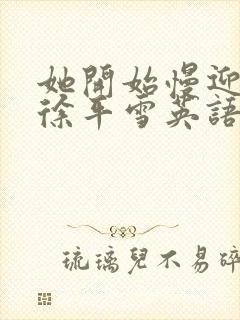 她開始慢迎
徐平雪英語
琉璃兒不易碎